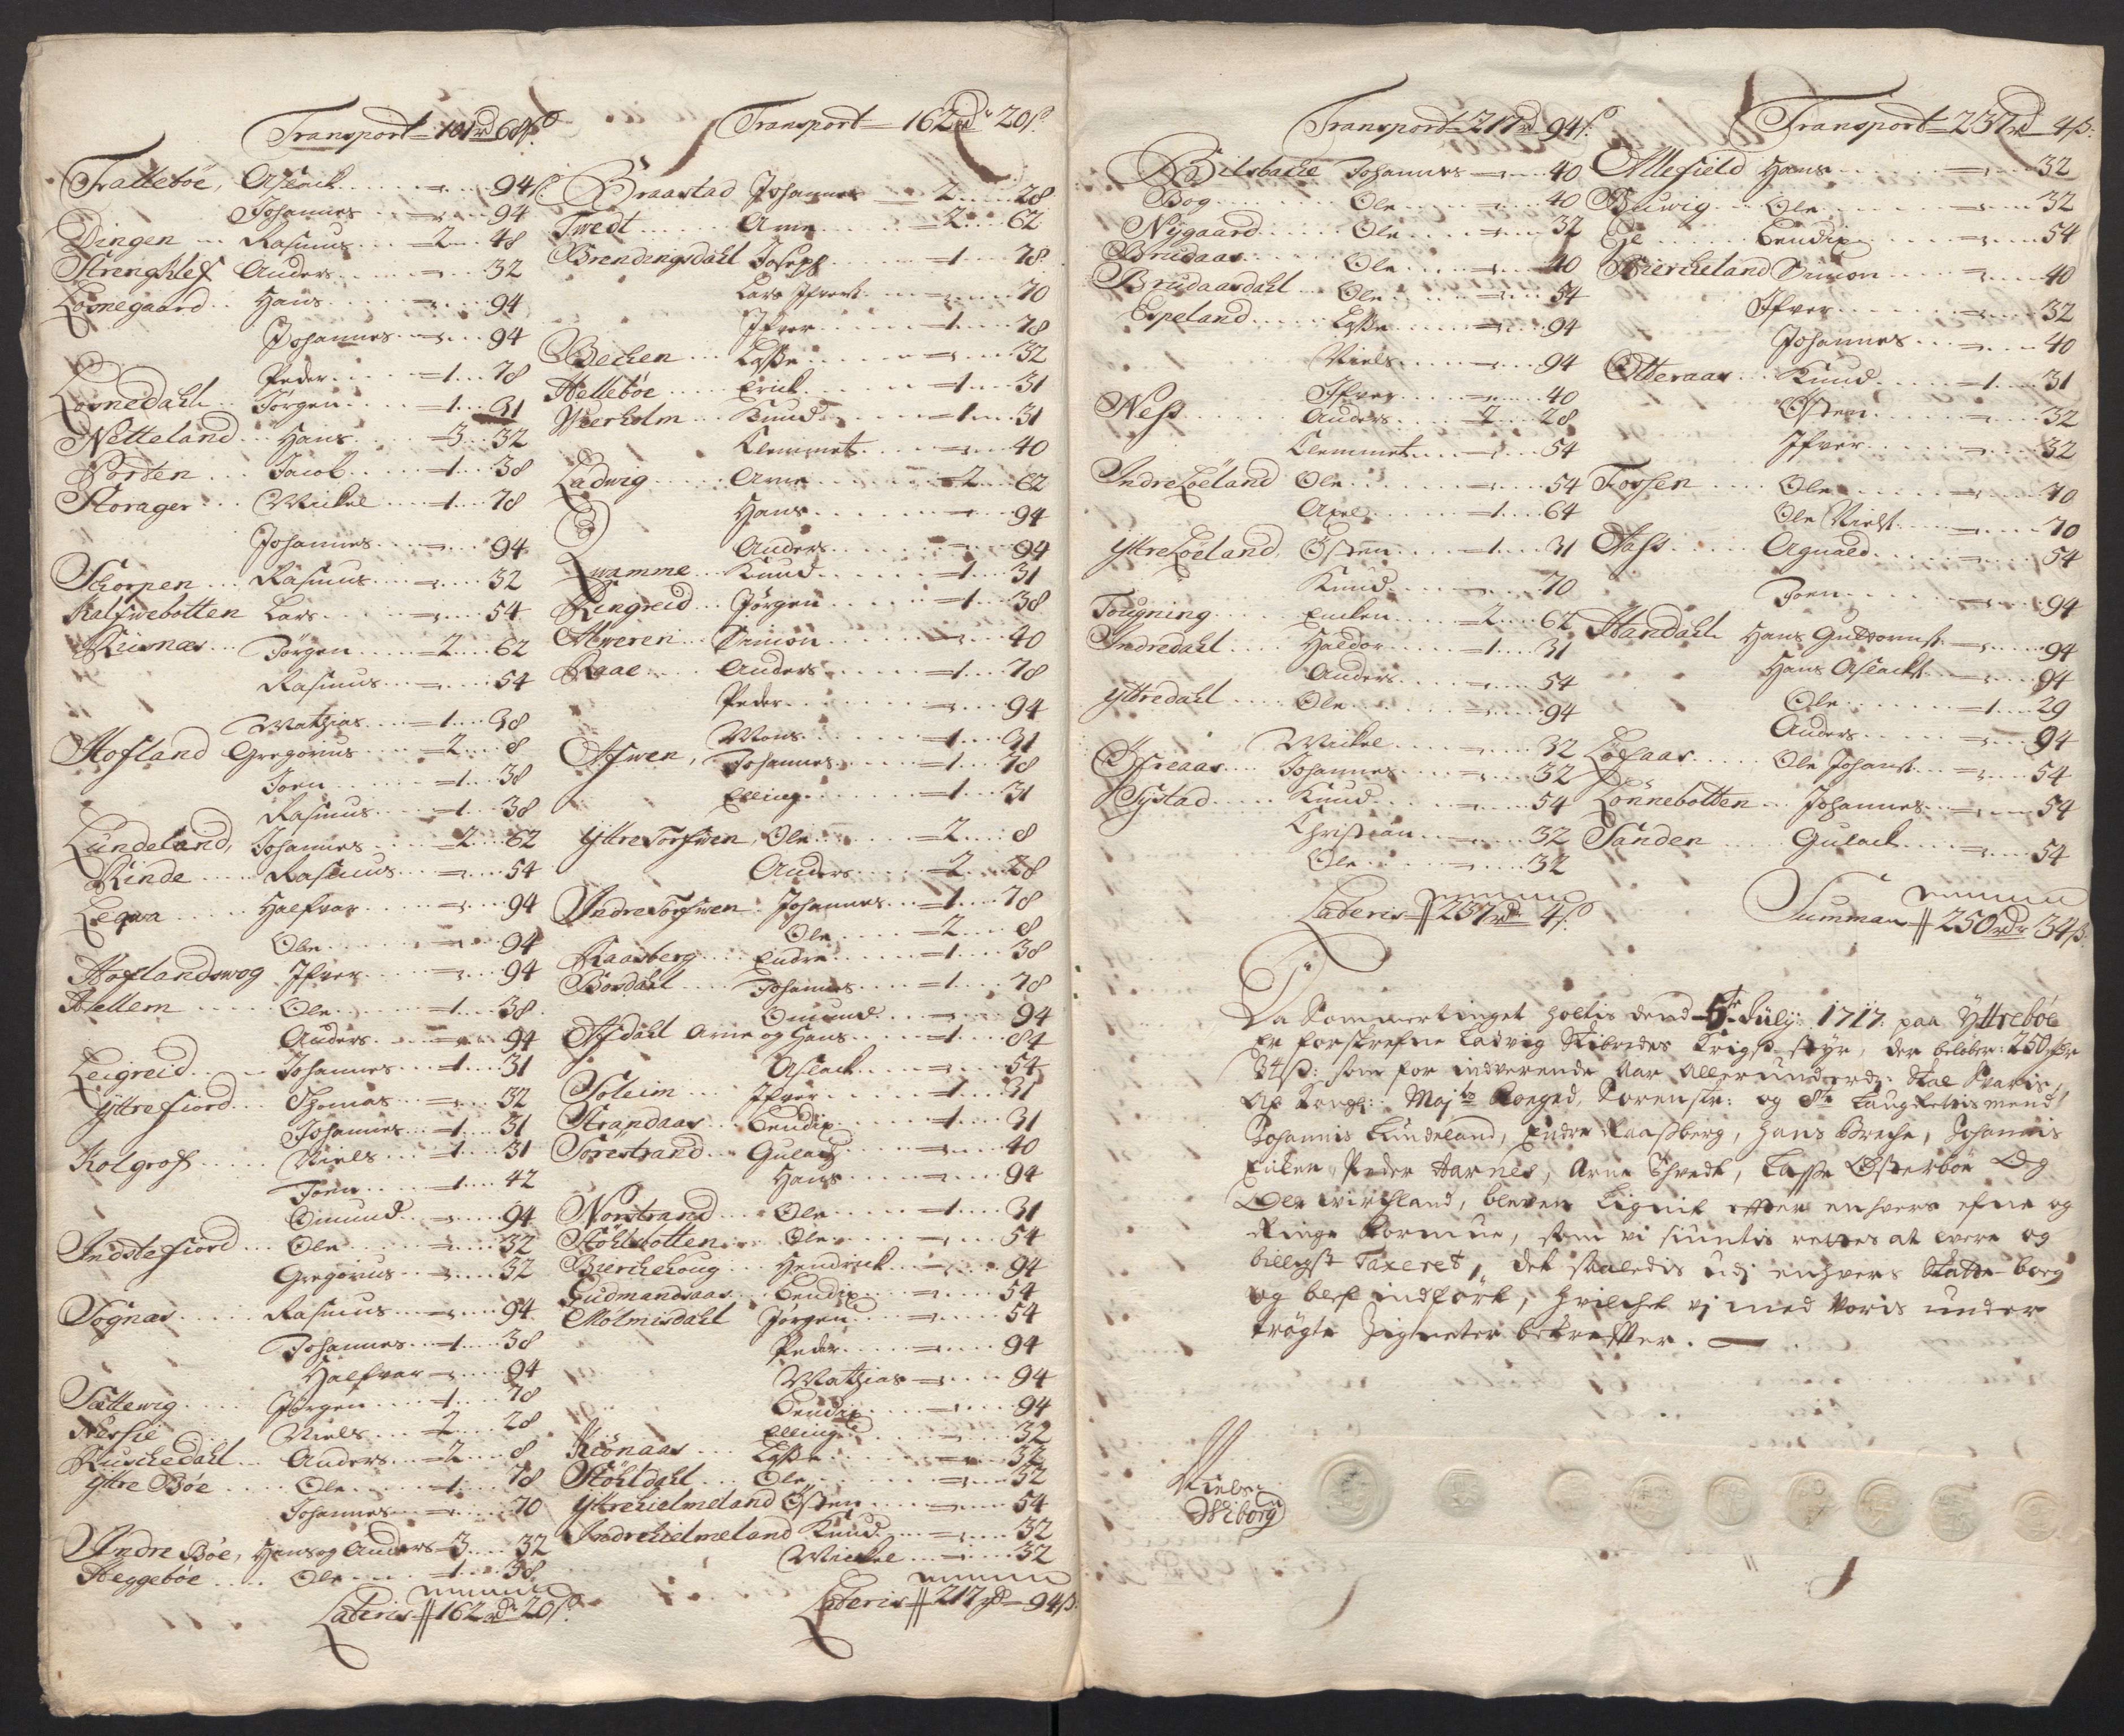 Transport = 101 rd 68 ß
Trallebøe, Aslack - 94 ß
Johannes - 94
Dingen Rasmus 2 48
Strenghlef Anders - 32
Losnegaard Hans - 94
Johannes - 94
Peder 1 78
Losnedahl Jørgen 1 31
Netteland Hans 3 32
Porten Jacob 1 38
Storager Mickel 1 78
Johannes - 94
Schorpen Rasmus - 32
Kalfwebotten Lars - 54
Riisnæs Jørgen 2 62
Rasmus - 54
Mathias 1 38
Hofland Gregorius 2 8
Joen 1 38
Rasmus 1 38
Lundeland, Johannes 2 62
Rinde Rasmus - 54
Leqwa Halfvar - 94
Ole - 94
Hoflandswog Ifver - 94
Hellem Ole 1 38
Anders - 94
Leigreid Johannes 1 31
Yttre fiord Thomas - 32
Johannes 1 31
Kolgrof Niels 1 31
Joen 1 42
Omund - 94
Indste fiord Ole - 32
Gregorius - 32
Sognæs Rasmus - 94
Johannes 1 38
Halfvar - 94
Sættewig Jørgen 1 78
Niels 2 28
Ruschedahl Anders 2 8
Yttre Bøe Ole 1 78
Johannes - 70
Indre Bøe, Hans og Anders 3 32
Heggebøe Ole 1 38
Lateris # 162 rdr 20 ß
Transport = 162 rdr 20 ß
Braastad Johannes 2 28
Twedt Arne 2 62
Brendingsdahl Joseph 1 78
Lars Ifvers - 70
Ifver 1 78
Bechen Lasse - 32
Hellebøe Erick 1 31
Ytterholm Knud 1 31
Clemmet - 40
Ladwig Arne 2 62
Hans - 94
Anders - 94
Qwamme Knud 1 31
Ringreid Jørgen 1 38
Simon - 40
Raae Anders 1 78
Peder - 94
Mons 1 31
Johannes 1 78
Elling 1 31
Yttre Torswen, Ole 2 8
Anders 2 28
Indre Torswen Johannes 1 78
Ole 2 8
Raasberg Endre 1 38
Bosdahl Johannes 1 78
Omund - 94
Afdahl Arne og Hans 1 84
Aslack - 54
Soleim Ifver 1 31
Strandaas Bendix 1 31
Sorestrand Gulack - 40
Hans - 94
Norstrand Ole 1 31
Stöhlsbotten Ole - 54
Birchehoug Hendrick - 94
Gudmandsaas Bendix - 54
Mølmisdahl Jørgen - 54
Peder - 94
Mathias - 94
Bendix - 94
Elling - 32
Kiönaas Lasse - 32
Stöhldahl Ole - 32
Yttrehielmeland Østen - 54
Indrehielmeland Knud - 32
Mickel - 32
Lateris # 217 rd 94 ß
Transport = 217 rd 94 ß
Bilsbache Johannes - 40
Bog Ole - 40
Nÿgaard Ole - 32
Brudaas Ole - 40
Brudaasdahl Ole - 54
Espeland Lasse - 94
Niels - 94
Ness Ifver - 40
Anders 2 28
Clemmet - 54
Indre Löeland Ole - 54
Axel 1 64
Yttre Löeland, Østen 1 31
Knud - 70
Tougning Encken 2 62
Indredahl Haldor 1 31
Anders - 54
Yttredahl Ole - 94
Mickel - 32
Johannes - 32
Systad Knud - 54
Christian - 32
Ole - 32
Lateris # 237 rd 4 ß
Transport = 237 rd 4 ß
Allefield Hans - 32
Buwig Ole - 32
Ee Bendix - 54
Bierckeland Simon - 40
Ifver - 32
Johannes - 40
Otteraas Knud 1 31
Østen - 32
Ifver - 32
Forsen Ole - 70
Ole Niels - 70
Aass Agnald - 54
Joen - 94
Standahl Hans Guttorms - 94
Hans Aslacks - 94
Ole 1 29
Anders - 94
Löfaas Ole Johans - 54
Lönnebotten Johannes - 54
Sanden Gulack - 54
Summan # 250 rdr 34 ß
Da Sommertinget holtis dend 5te Julÿ 1717 paa Yttrebøe
er forskrefne Ladvig Skibredes Krigs-Styr, der beløber: 250 rdr
34 ß: som for indverende Aar allerunderd: skal Svaris,
af Kongl: Majts foeged, Sorenskr: og 8te Laugrettismend
Johannis Lundeland, Endre Raasberg, Hans Breche, Johannis
Encken, Peder Aarnes, Arne Thvedt, Lasse Østerbøe Og
Ole Birchland, bleven Lignit efter enhvers efne og
Ringe formue, som vi siuntis rettes at were og
billigst Taxeret, det saaledis udj enhvers Skatte-borg
og blef indført, hvilchet vj med Voris under
trögte Zigneter bekreffter.
Niels
Wiborg